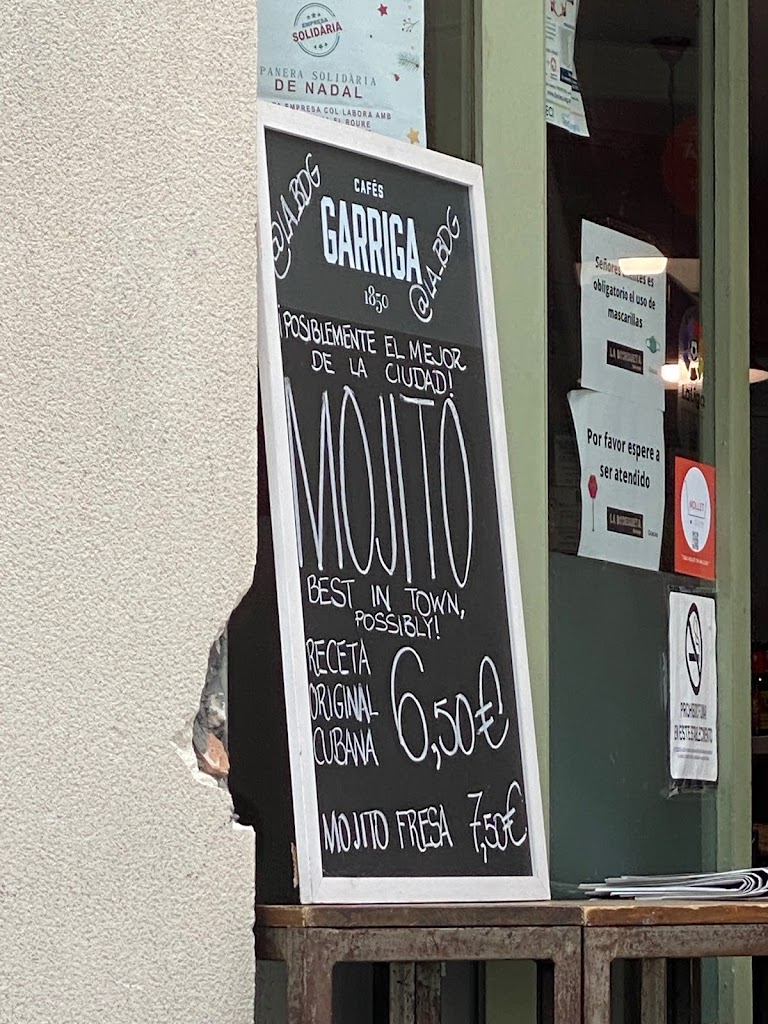 EMPRESA
SOLIDÀRIA
PANERA SOLIDÀRIA
DE NADAL
EMPRESA COL·LABORA AMB
EL ROURE
@LA_BDG
CAFÉS
GARRIGA
1850
@LA_BDG
¡POSIBLEMENTE EL MEJOR
DE LA CIUDAD!
MOJITO
BEST IN TOWN,
POSSIBLY!
RECETA
ORIGINAL
CUBANA
6,50€
MOJITO FRESA 7,50€
Señores
es
obligatorio el uso de
mascarillas
LA BODEGUETA
LaLiga
Por favor espere a
ser atendido
LA BODEGUETA
Gracias
MOLLET
PROHIBIDO FUMAR
EN ESTE ESTABLECIMIENTO